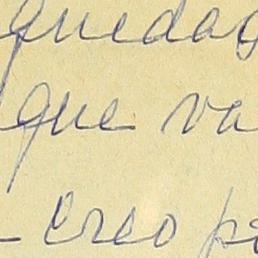 quedad
que va
- creo p